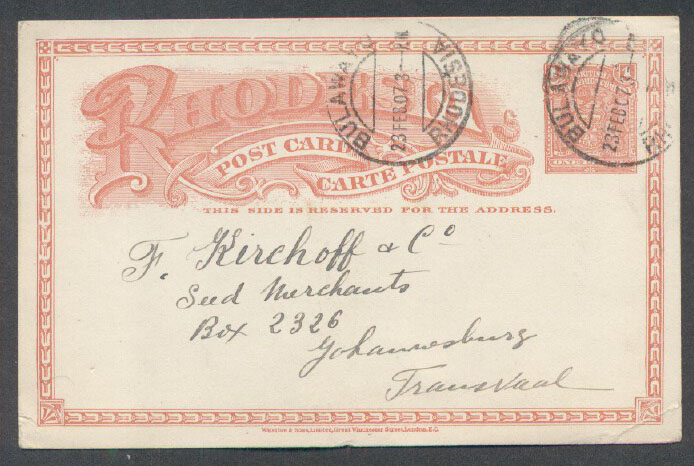 RHODESIA
POST CARD
CARTE POSTALE
THIS SIDE IS RESERVED FOR THE ADDRESS.
BULAWAYO
23 FEB 07
RHODESIA
BULAWAYO
23 FEB 07
F. Kirchoff & Co
Seed Merchants
Box 2326
Johannesburg
Transvaal
Waterlow & Sons, Limited, Great Winchester Street, London, E.C.